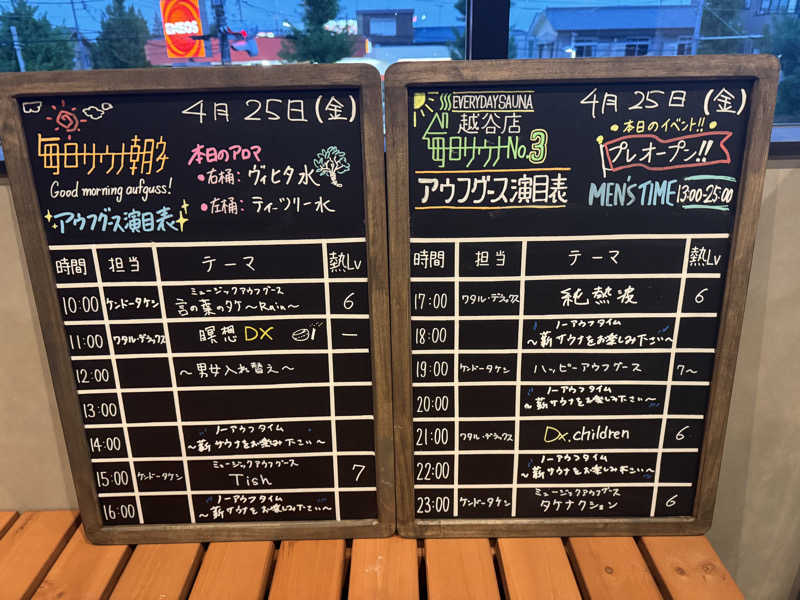 ENEOS
4月 25日 (金)
毎日サウナ朝
Good morning aufguss!
アウフグース演目表
本日のアロマ
・右桶: ヴィヒタ水
・左桶: ティーツリー水
時間 担当 テーマ 熱Lv
10:00 ケンドータケシ ミュージックアウフグース
言の葉のタケ〜Rain〜 6
11:00 ワタル・デラックス 瞑想DX ー
12:00 〜男女入れ替え〜
13:00
14:00 ノーアウフタイム
〜薪サウナをお楽しみ下さい〜
15:00 ケンドータケシ ミュージックアウフグース
Tish 7
16:00 ノーアウフタイム
〜薪サウナをお楽しみ下さい〜
EVERYDAY SAUNA
越谷店
毎日サウナNo.3
アウフグース演目表
4月 25日 (金)
・本日のイベント!!・
プレオープン!!
MEN'S TIME 13:00-25:00
時間 担当 テーマ 熱Lv
17:00 ワタル・デラックス 純熱波 6
18:00 ノーアウフタイム
〜薪サウナをお楽しみ下さい〜
19:00 ケンドータケシ ハッピーアウフグース 7〜
20:00 ノーアウフタイム
〜薪サウナをお楽しみ下さい〜
21:00 ワタル・デラックス Dx.children 6
22:00 ノーアウフタイム
〜薪サウナをお楽しみ下さい〜
23:00 ケンドータケシ ミュージックアウフグース
タケナクション 6